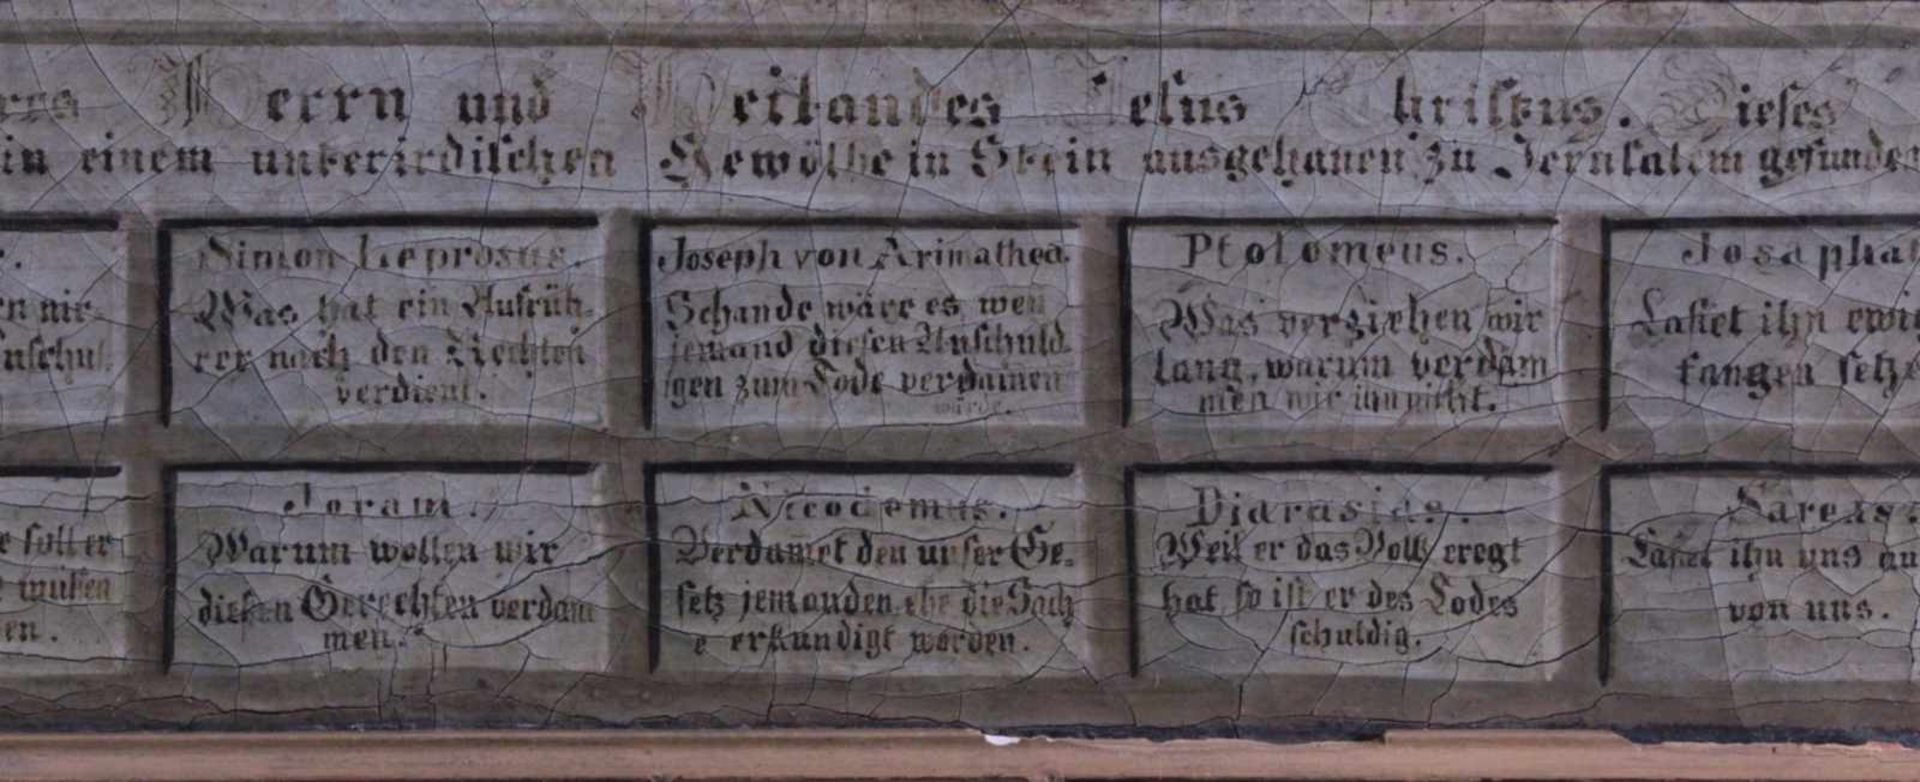 Herrn und Heilandes Jesus Christus. Dieses
in einem unterirdischen Gewölbe in Stein ausgehauen zu Jerusalem gefunden
Simon Leprosus.
Was hat ein Aufrüh-
rer nach den Rechten
verdient.
Joseph von Arimathea.
Schande wäre es wen
jemand diesen Unschuld
igen zum Tode verdamen
würde.
Ptolomeus.
Was verziehen wir
lang, warum verdam
men wir ihn nicht.
Josaphat
Lasset ihn ewig
fangen setze
soll er
müssen
en.
Joram.
Warum wollen wir
diesen Gerechten verdam
men.
Nicodemus.
Verdamet den unser Ge-
setz jemanden ehe die Sach
e erkundigt worden.
Djarasias.
Weil er das Volk eregt
hat so ist er des Todes
schuldig.
Sareas.
Lasset ihn uns
von uns.